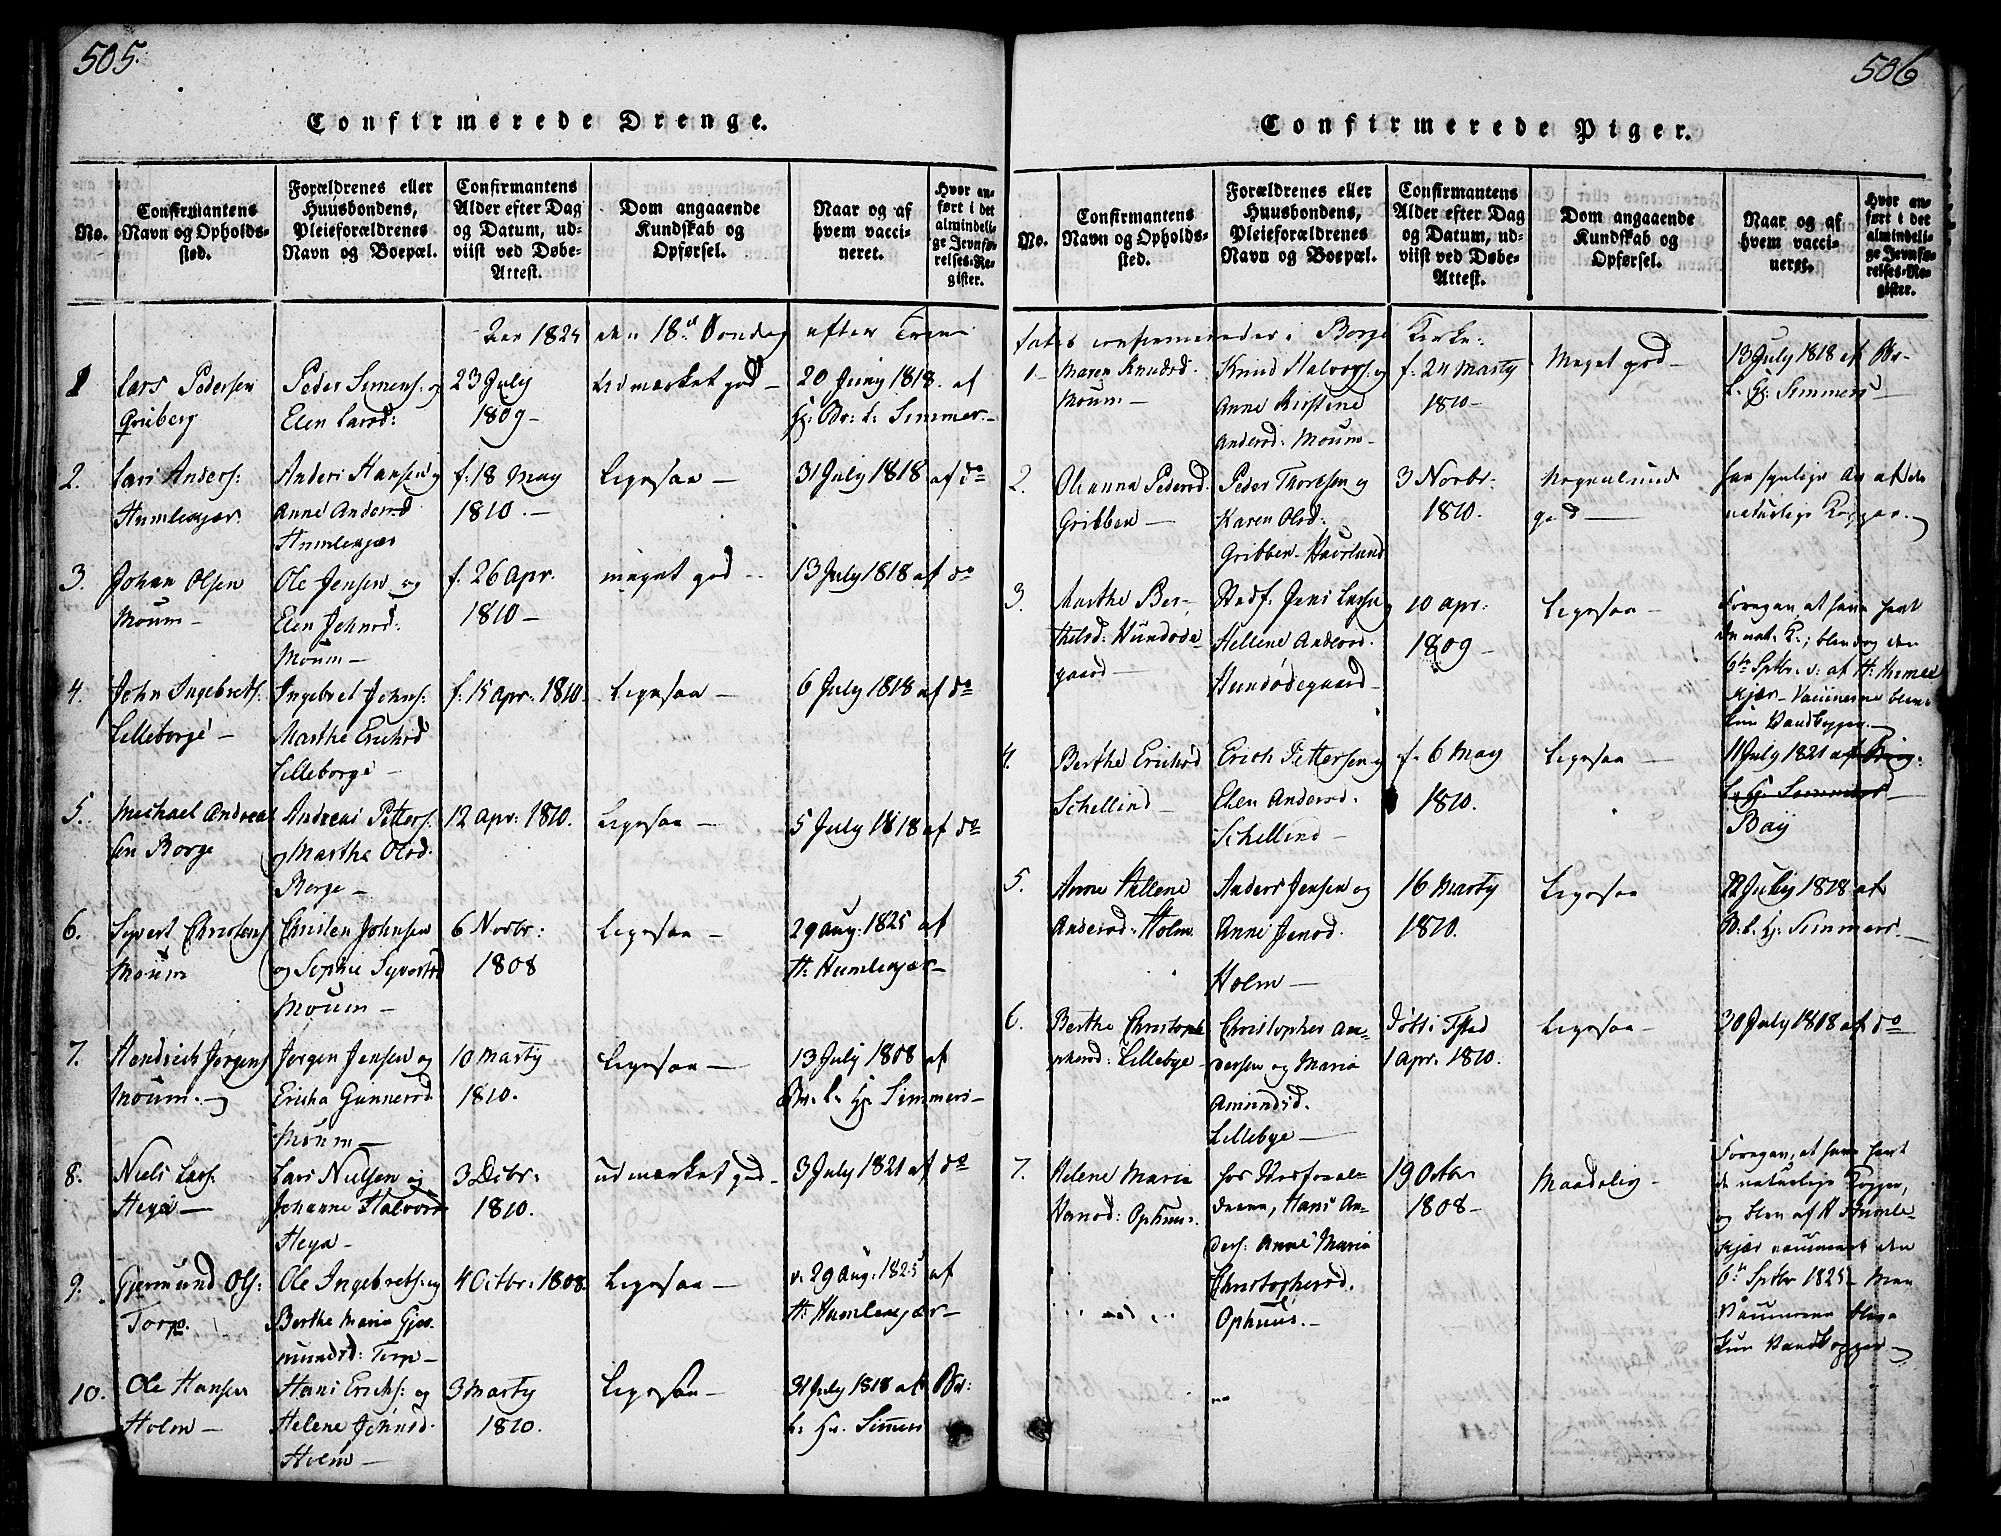 505.
Confirmerede Drenge.
No.
Confirmantens
Navn og Opholds-
sted.
Forældrenes eller
Huusbondens,
Pleieforældrenes
Navn og Boepæl.
Confirmantens
Alder efter Dag
og Datum, ud-
viist ved Døbe-
Attest.
Dom angaaende
Kundskab og
Opførsel.
Naar og af
hvem vacci-
neret.
Hvor an-
ført i det
almindeli-
ge Jevnfø-
relses-Re-
gister.
Aar 1825 den 18de Søndag efter Trin:
1
Lars Pedersen
Griberg
Peder Simens: og
Elen Larsd:
23 July
1809 -
Udmærket god -
20 Juny 1818. af
Hr. Br: L: Simmers -
2.
Lars Anders:
Humlekjær.
Anders Hansen og
Anne Andersd
Humlekjær
f. 18 May
1810. -
Ligesaa -
31 July 1818 af do
3.
Johan Olsen
Moum -
Ole Jensen og
Elen Johnsd:
Moum -
f. 26 Apr.
1810 -
meget god -
13 July 1818 af do
4.
John Ingebrets:
Lilleborge -
Ingebret Johns:
Marthe Erichsd
Lilleborge -
f. 15 apr: 1810
Ligesaa -
6 July 1818 af do
5.
Michael Andrea
sen Borge
Andreas Petters:
og Marthe Olsd.
Borge -
12 apr: 1810.
Ligesaa -
5 July 1818 af do
6.
Syvert Christens
Moum
Christen Johnsen
og Sophie Syvertsd
Moum -
6 Novbr:
1808
Ligesaa -
29 Aug: 1825 af
H: Humlekjær -
7.
Hendrich Jørgens
Moum. -
Jørgen Jensen og
Ericha Gunnersd
Moum -
10 Marty
1810.
Ligesaa -
13 July 1808 af
Br. L. Hr. Simmers -
8.
Niels Lars:
Heya -
Lars Nielsen og
Johanne Halvors
Heya -
3 Decbr:
1810.
udmærket god -
3 July 1821 af do
9.
Gjermund Ols:
Torp.
Ole Ingebrets: og
Berthe Maria Gjer-
mundsd: Torp -
4 Octbr: 1808
Ligesaa -
v. 29 Aug: 1825 af
H: Humlekjær -
10.
Ole Hansen
Holm -
Hans Erichs: og
Helene Johnsd.
Holm -
3 Marty
1810.
Ligesaa -
31 July 1818 af Br:
L. Hr. Simers
506
Confirmerede Piger.
No.
Confirmantens
Navn og Opholds-
sted.
Forældrenes eller
Huusbondens,
Pleieforældrenes
Navn og Boepæl.
Confirmantens
Alder efter Dag
og Datum, ud-
viist ved Døbe-
Attest.
Dom angaaende
Kundskab og
Opførsel.
Naar og af
hvem vacci-
neret.
Hvor an-
ført i det
almindeli-
ge Jevnfø-
relses-Re-
gister.
tatis confirmereder i Borge Kirke:
1 -
Maren Knudsd.
Moum -
Knud Halvors: og
Anne Kirstine
Andersd: Moum -
f. 24 Marty
1810 -
Meget god -
13 July 1818 af Br-
L. Hr. Simmers -
2.
Olianna Pedersd.
Gribben -
Peder Thoresen og
Karen Olsd:
Gribben. Haurlund
3 Novbr:
1810.
god -
har synlige Ar af de
naturlige Kopper. -
3.
Marthe Ber-
thelsd: Hundøde-
gaard -
Stedf. Jens Larsen og
Hellene Andersd.
Hundødegaard -
10 apr:
1809 -
Ligesaa -
Foregav, at have havt
de nat. K.; blev dog den
6te Sptbr. v: af H: Humle
kjær - Vaccinerne bleve
kun Vandkopper. -
4.
Berthe Erichsd
Schellind -
Erich Pettersen og
Elen Andersd.
Schellind -
f. 6 May
1810.
Ligesaa -
11 July 1821 af
Bay
5.
Anne Hellene
Andersd: Holm
Anders Jensen og
Anne Jensd.
Holm -
16 Marty
1810.
Ligesaa
22 July 1818 af
B. L. Hr. Simmers. -
6.
Berthe Christoph
ersd: Lillebye -
Christopher An-
dersen og Maria
Amundsd.
Lillebye -
1 apr. 1810.
Ligesaa -
30 July 1818 af do
7.
Helene Maria
Hansd: Ophuus.
hos Stedforæl-
drene, Hans An-
ders: Anne Maria
Christophersd.
Ophuus. -
19 Octbr
1808 -
Maadelig -
Foregav, at have havt
de naturlige Kopper,
og blev af H Humle-
kjær vaccineret den
6te Sptbr 1825 - Men
Vaccinerne bleve
kun Vandkopper -